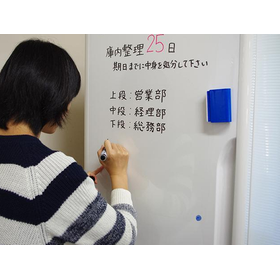 庫内整理25日
期日までに中身を処分して下さい
上段:営業部
中段:経理部
下段:総務部